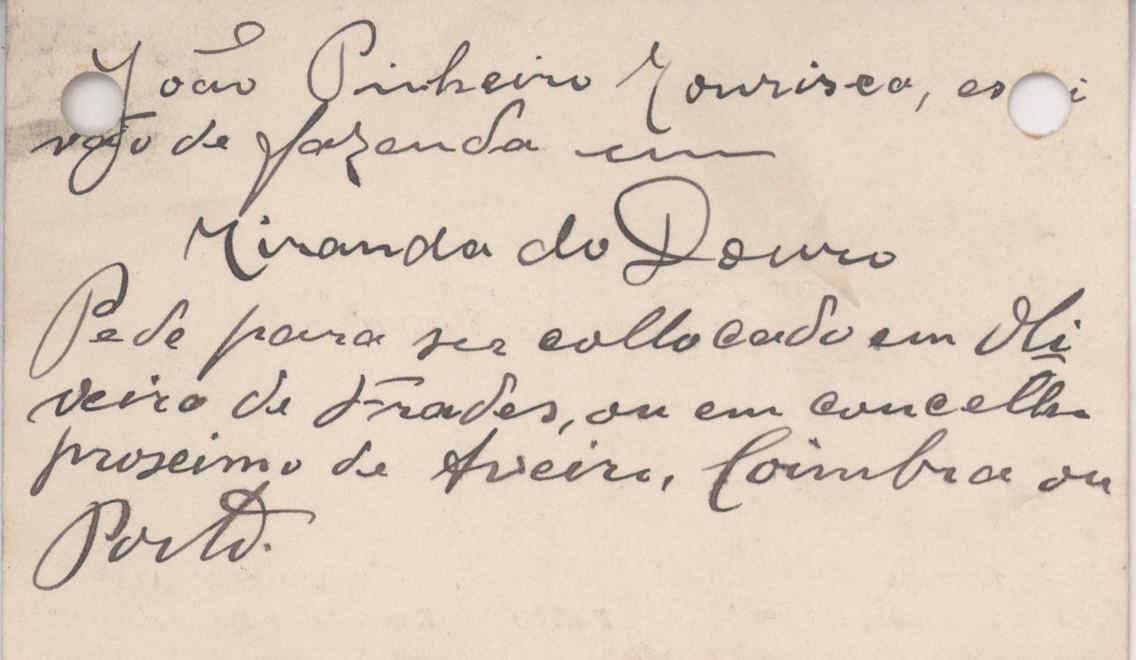 João Pinheiro Mourisca, es i
vão de fazenda em
Miranda do Douro
Pede para ser collocado em Oli
veira de Frades, ou em concelho
proximo de Aveiro, Coimbra ou
Porto.